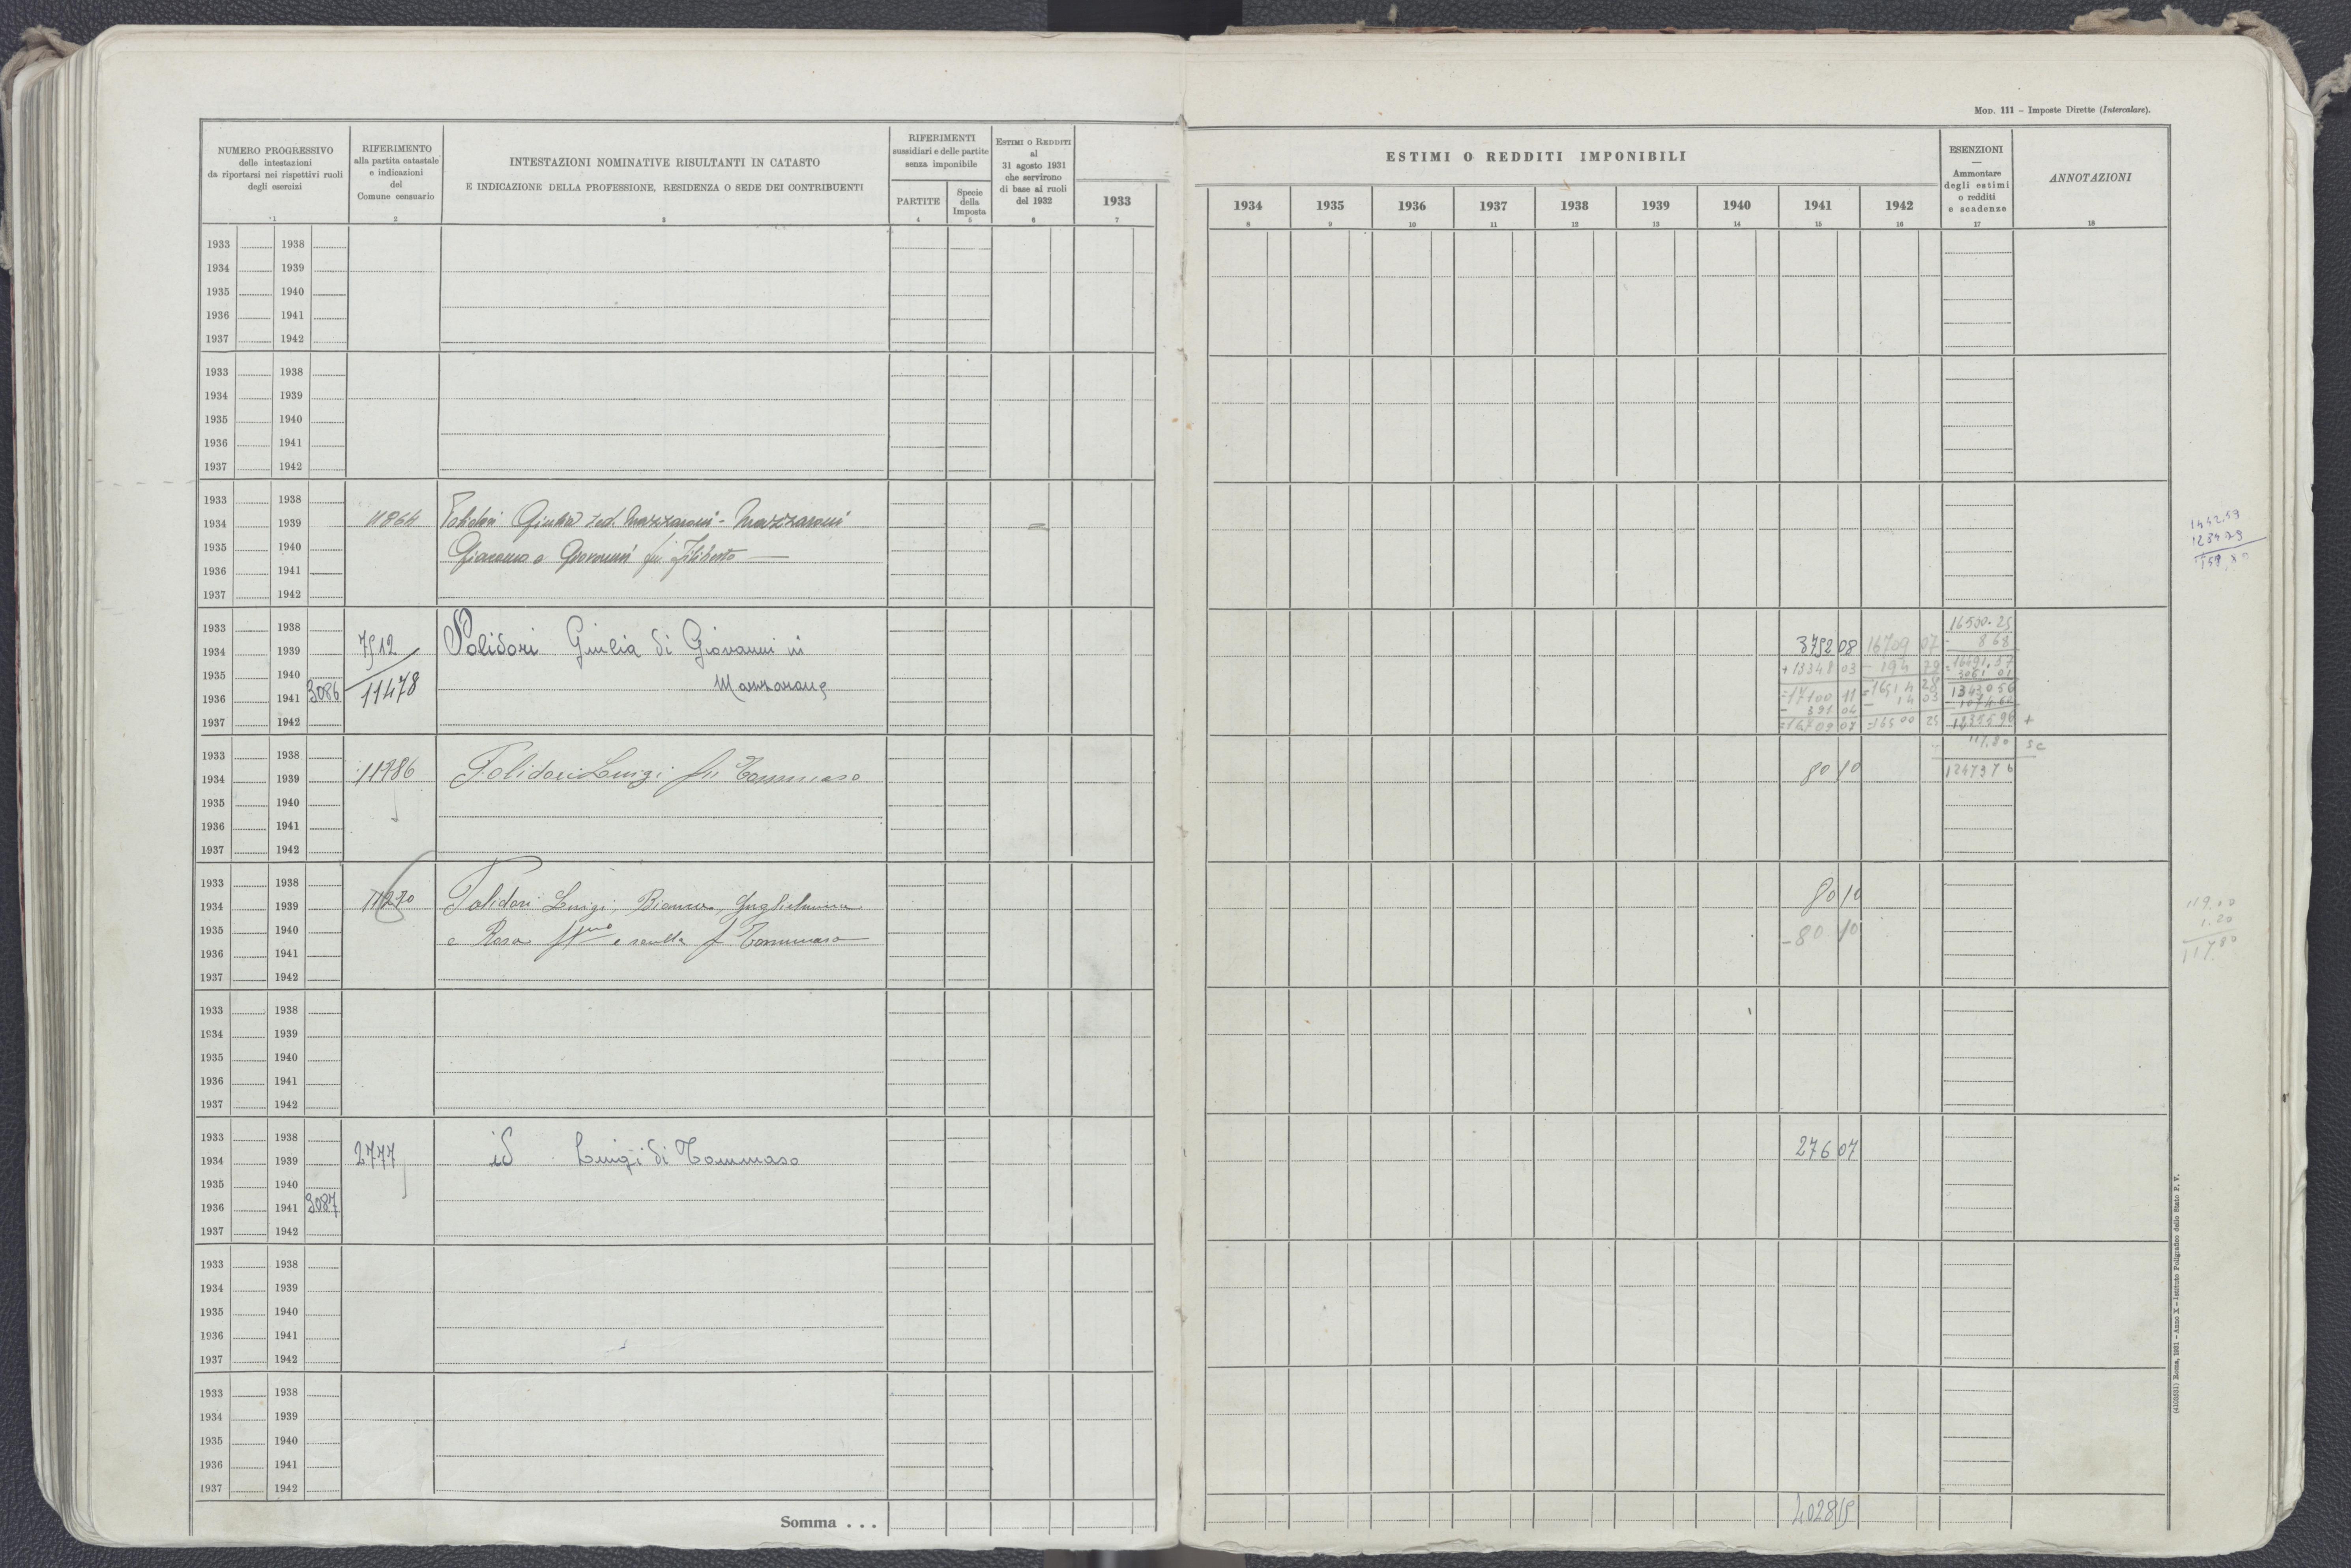 MOD. 111 – Imposte Dirette (Intercalare).
NUMERO PROGRESSIVO
delle intestazioni
da riportarsi nei rispettivi ruoli
degli esercizi
1
RIFERIMENTO
alla partita catastale
e indicazioni
del
Comune censuario
2
INTESTAZIONI NOMINATIVE RISULTANTI IN CATASTO
E INDICAZIONE DELLA PROFESSIONE, RESIDENZA O SEDE DEI CONTRIBUENTI
3
RIFERIMENTI
sussidiari e delle partite
senza imponibile
PARTITE
4
Specie
della
Imposta
5
ESTIMI O REDDITI
al
31 agosto 1931
che servirono
di base ai ruoli
del 1932
6
1933
7
ESTIMI O REDDITI IMPONIBILI
1934 1935 1936 1937 1938 1939 1940 1941 1942
8 9 10 11 12 13 14 15 16
ESENZIONI
—
Ammontare
degli estimi
o redditi
e scadenze
17
ANNOTAZIONI
18
1933 1938
1934 1939
1935 1940
1936 1941
1937 1942
1933 1938
1934 1939
1935 1940
1936 1941
1937 1942
1933 1938
1934 1939 11864 Polidori Giulia ved. Mazzaroni - Mazzaroni =
1935 1940 Giacomo e Giovanni fu Filiberto —
1936 1941
1937 1942
1933 1938 16500.25
1934 1939 7512 Polidori Giulia di Giovanni in 3752 08 16709 07 - 8 68
1935 1940 +13348 03 - 194 79 16491.57
3061 01
1936 1941 3086 11478 =17100 11 =16514 28 13430 56
- 391 04 - 14 03
1937 1942 =16709 07 =16500 25 12355 96 +
1933 1938 117.80 sc
1934 1939 11786 Polidori Luigi fu Tommaso 80 10 12473 76
1935 1940
1936 1941
1937 1942
1933 1938
1934 1939 11270 Polidori Luigi, Bianca, Guglielmina 80 10
1935 1940 e Rosa e sorella f Tommaso -80 10
1936 1941
1937 1942
119.00
1.20
117.80
1933 1938
1934 1939
1935 1940
1936 1941
1937 1942
1933 1938
1934 1939 2777 id Luigi di Tommaso 276 07
1935 1940
1936 1941 3087
1937 1942
1933 1938
1934 1939
1935 1940
1936 1941
1937 1942
1933 1938
1934 1939
1935 1940
1936 1941
1937 1942
Somma . . . 4028 15
(4103531) Roma, 1931 – Anno X – Istituto Poligrafico dello Stato P. V.